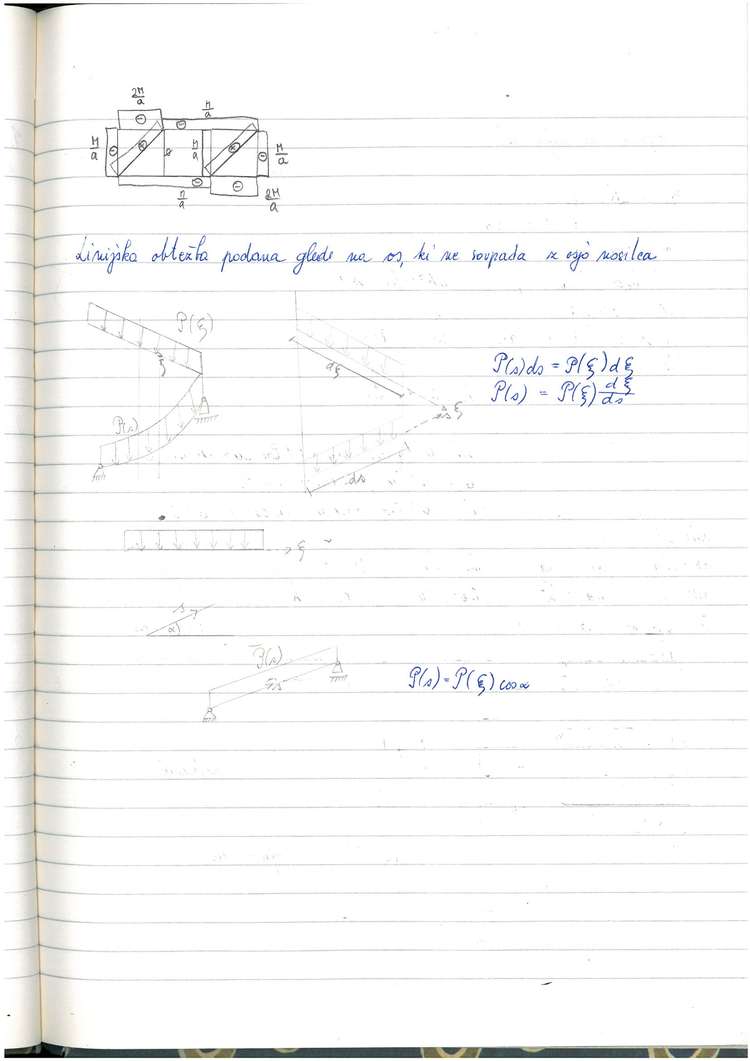 2M/a
M/a
⊖ ⊖
M/a ⊖ ⊕ a M/a ⊕ ⊖ M/a
⊖ ⊖
M/a 2M/a
Linijska obtežba podana glede na os, ki ne sovpada z osjo nosilca
P(ξ)
ξ
dξ
P(s)ds = P(ξ)dξ
P(s) = P(ξ) dξ/ds
s ξ
P(s)
ds
ξ
s
α
P(s)
s
P(s) = P(ξ) cos α